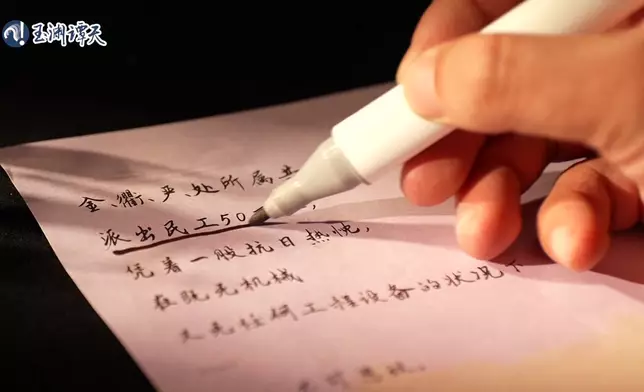 玉渊谭天
金、衢、严、处所属共
派出民工50
凭着一股抗日热忱,
在既无机械
又无任何工程设备的状况下